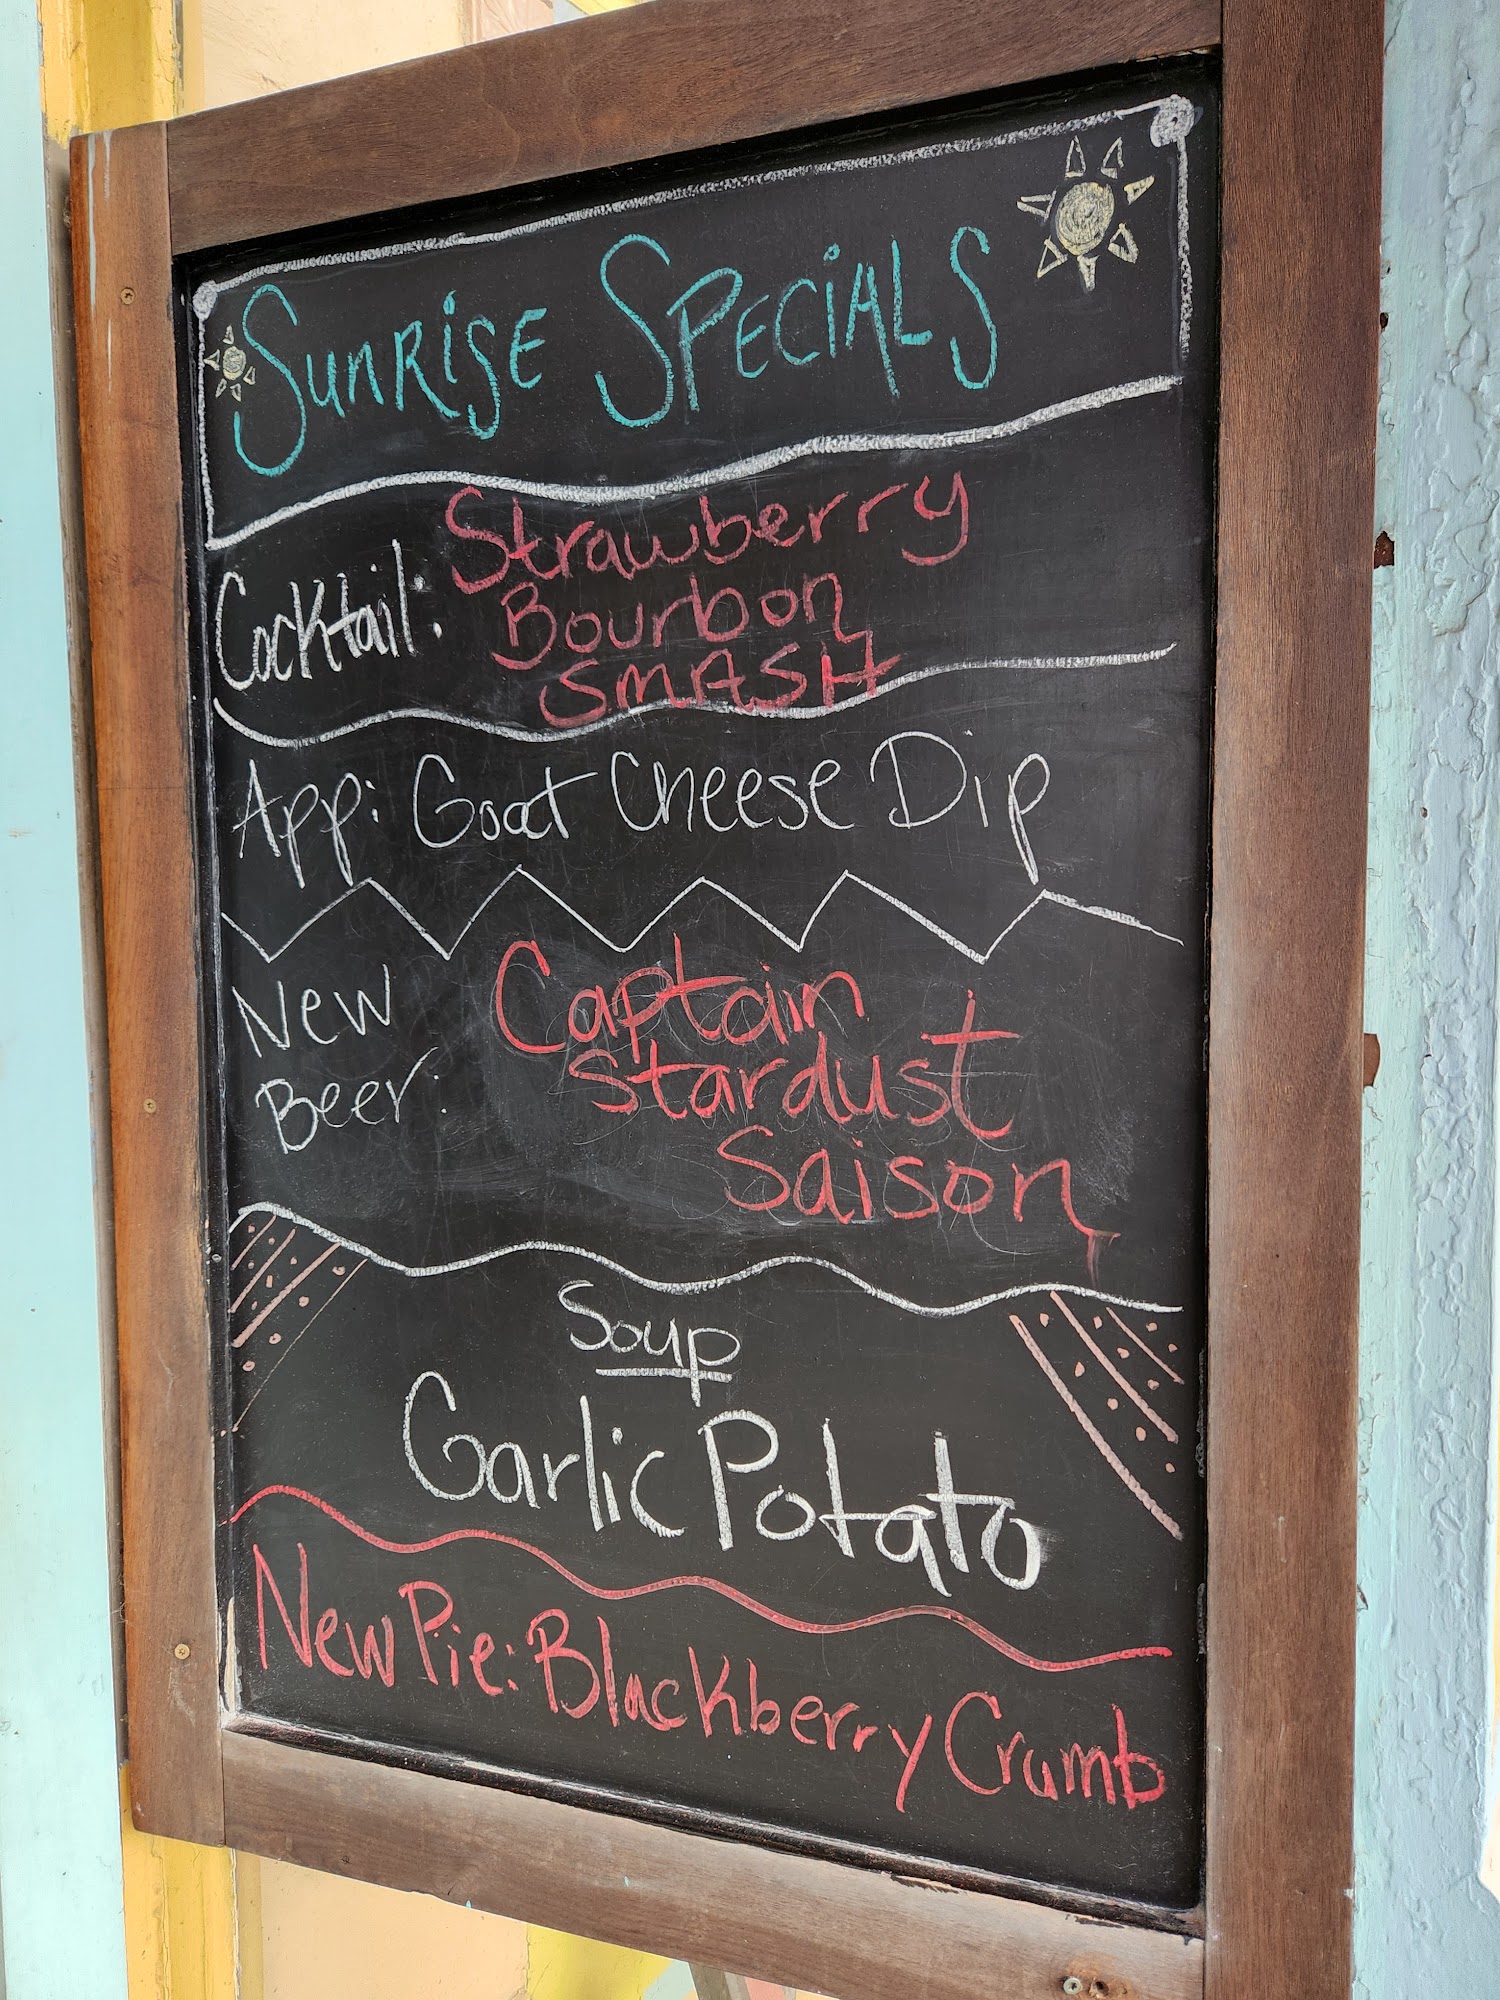 Sunrise Specials
Cocktail: Strawberry
Bourbon
SMASH
App: Goat Cheese Dip
New Beer: Captain
Stardust
Saison
Soup
Garlic Potato
New Pie: Blackberry Crumb